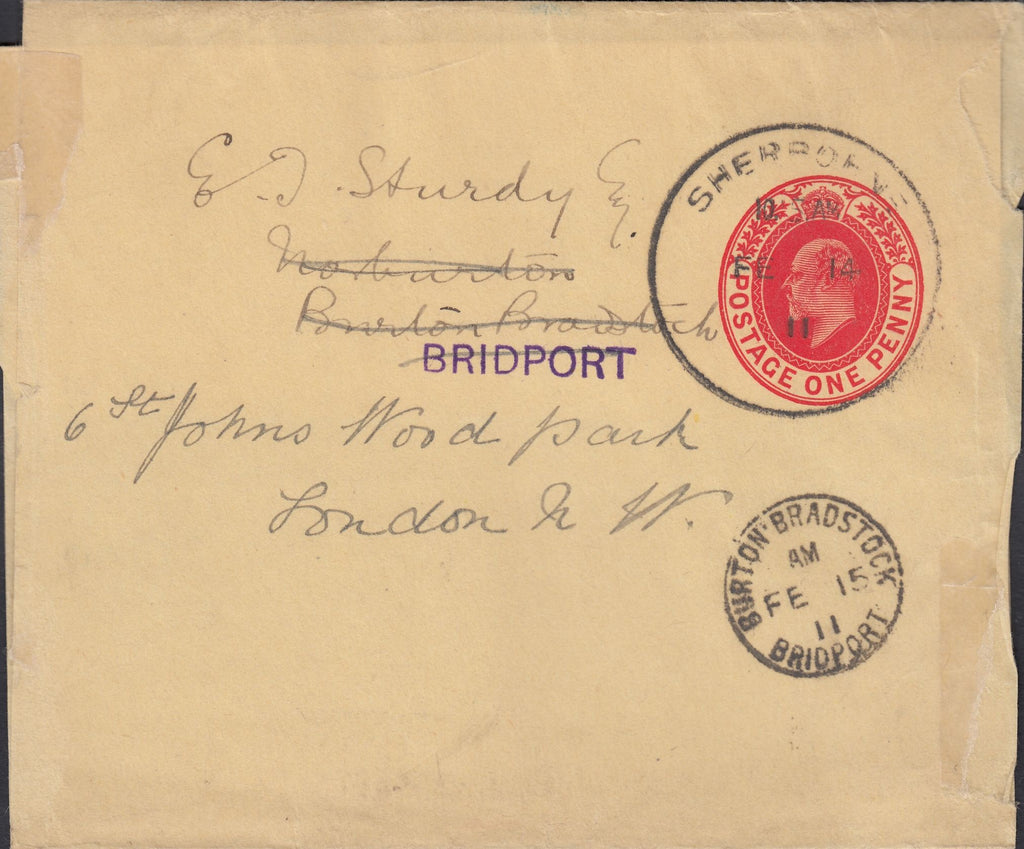 E. T. Sturdy Esq.
Norburton
Burton Bradstock
BRIDPORT
6 St Johns Wood park
London N. W.
SHERBORNE
12 5 AM
FE 14
11
POSTAGE ONE PENNY
BURTON·BRADSTOCK
AM
FE 15
11
BRIDPORT